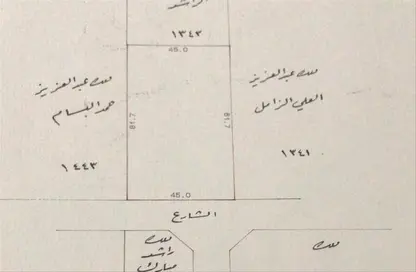 الراشد
١٣٤٣
45.0
ملك عبدالعزيز
العلي الزامل
١٣٤١
81.7
81.7
ملك عبدالعزيز
حمد البسام
١٤٤٣
45.0
الشارع
ملك
ملك
راشد
مبارك